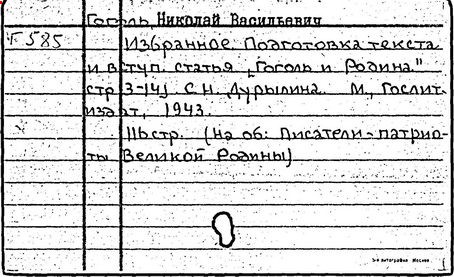 Гоголь Николай Васильевич
Г585 Избранное. Подготовка текста
и вступ. статья „Гоголь и Родина"
стр 3-14) С.Н. Дурылина. М., Гослит-
издат, 1943.
116стр. (На об: Писатели-патрио-
ты Великой Родины)